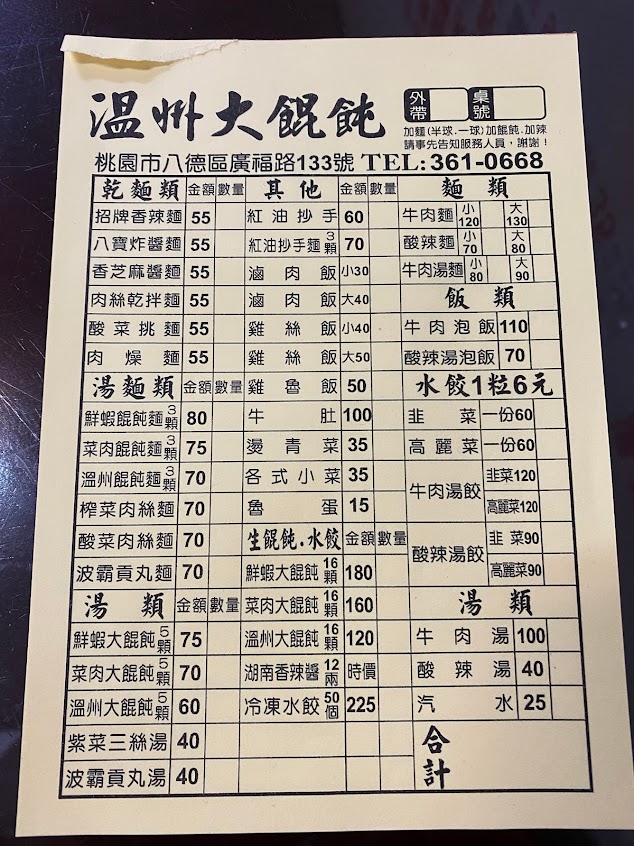 溫州大餛飩
外帶
桌號
加麵(半球.一球)加餛飩.加辣
請事先告知服務人員,謝謝!
桃園市八德區廣福路133號 TEL:361-0668
乾麵類 金額 數量
招牌香辣麵 55
八寶炸醬麵 55
香芝麻醬麵 55
肉絲乾拌麵 55
酸菜挑麵 55
肉燥麵 55
湯麵類 金額 數量
鮮蝦餛飩麵3顆 80
菜肉餛飩麵3顆 75
溫州餛飩麵3顆 70
榨菜肉絲麵 70
酸菜肉絲麵 70
波霸貢丸麵 70
湯類 金額 數量
鮮蝦大餛飩5顆 75
菜肉大餛飩5顆 70
溫州大餛飩5顆 60
紫菜三絲湯 40
波霸貢丸湯 40
其他 金額 數量
紅油抄手 60
紅油抄手麵3顆 70
滷肉飯 小30
滷肉飯 大40
雞絲飯 小40
雞絲飯 大50
雞魯飯 50
牛肚 100
燙青菜 35
各式小菜 35
魯蛋 15
生餛飩.水餃 金額 數量
鮮蝦大餛飩16顆 180
菜肉大餛飩16顆 160
溫州大餛飩16顆 120
湖南香辣醬12兩 時價
冷凍水餃50個 225
麵類
牛肉麵 小120 大130
酸辣麵 小70 大80
牛肉湯麵 小80 大90
飯類
牛肉泡飯 110
酸辣湯泡飯 70
水餃1粒6元
韭菜 一份60
高麗菜 一份60
牛肉湯餃 韭菜120
高麗菜120
酸辣湯餃 韭菜90
高麗菜90
湯類
牛肉湯 100
酸辣湯 40
汽水 25
合計